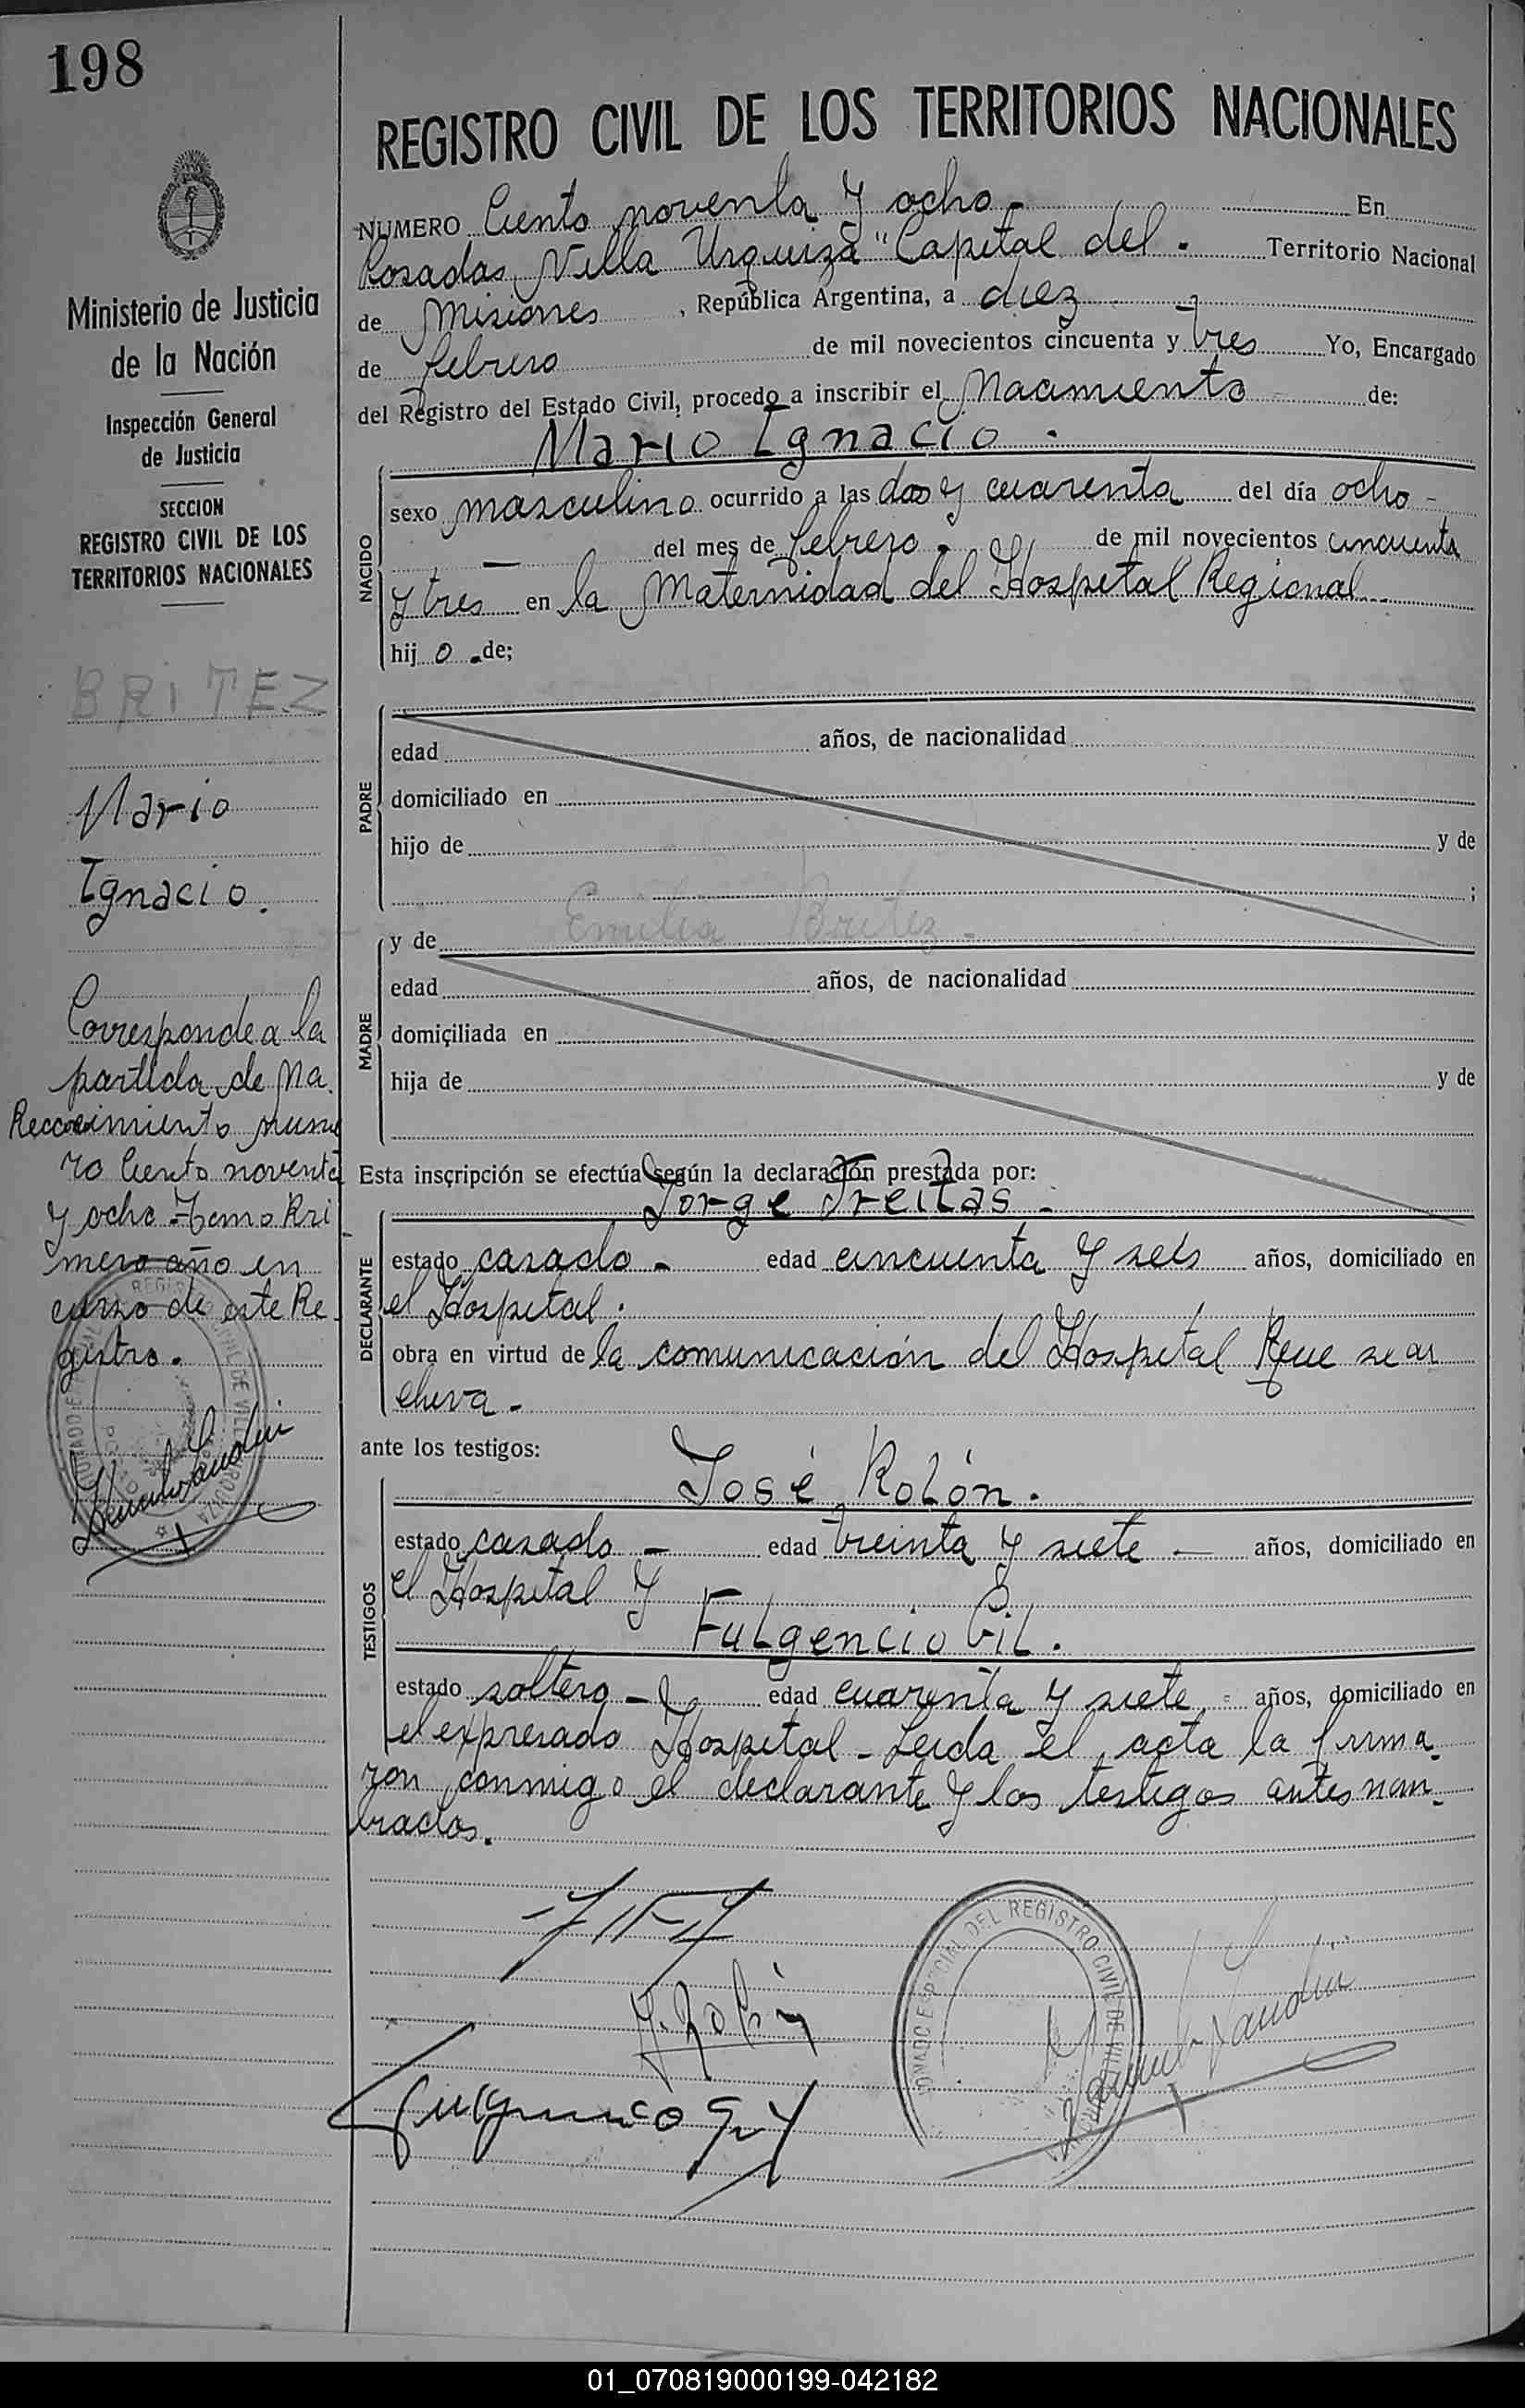 198
Ministerio de Justicia
de la Nación
Inspección General
de Justicia
SECCION
REGISTRO CIVIL DE LOS
TERRITORIOS NACIONALES
BRITEZ
Mario
Ignacio.
Corresponde a la
partida de Na.
nume
ro Ciento noventa
y ocho - Tomo Pri
mero año en
curso de este Re
gistro.
REGISTRO CIVIL DE LOS TERRITORIOS NACIONALES
NUMERO Ciento noventa y ocho - En
Posadas Villa Urquiza "Capital del - Territorio Nacional
de Misiones, República Argentina, a diez
de febrero de mil novecientos cincuenta y tres Yo, Encargado
del Registro del Estado Civil, procedo a inscribir el Nacimiento de:
Mario Ignacio.
NACIDO
sexo masculino ocurrido a las dos y cuarenta del día ocho -
del mes de febrero - de mil novecientos cincuenta
y tres en la Maternidad del Hospital Regional
hijo de;
PADRE
edad años, de nacionalidad
domiciliado en
hijo de y de
;
MADRE
y de Emilia Britez -
edad años, de nacionalidad
domiciliada en
hija de y de
Esta inscripción se efectúa según la declaración prestada por:
Jorge Freitas -
DECLARANTE
estado casado - edad cincuenta y seis años, domiciliado en
el Hospital.
obra en virtud de la comunicación del Hospital que se ar
chiva -
ante los testigos:
José Rolón.
TESTIGOS
estado casado - edad treinta y siete - años, domiciliado en
el Hospital y
Fulgencio Gil.
estado soltero - edad cuarenta y siete - años, domiciliado en
el expresado Hospital - Leida el acta la firma
ron conmigo el declarante y los testigos antes nom
brados.
J. Rolón
DEL REGISTRO CIVIL DE VILLA
01_070819000199-042182